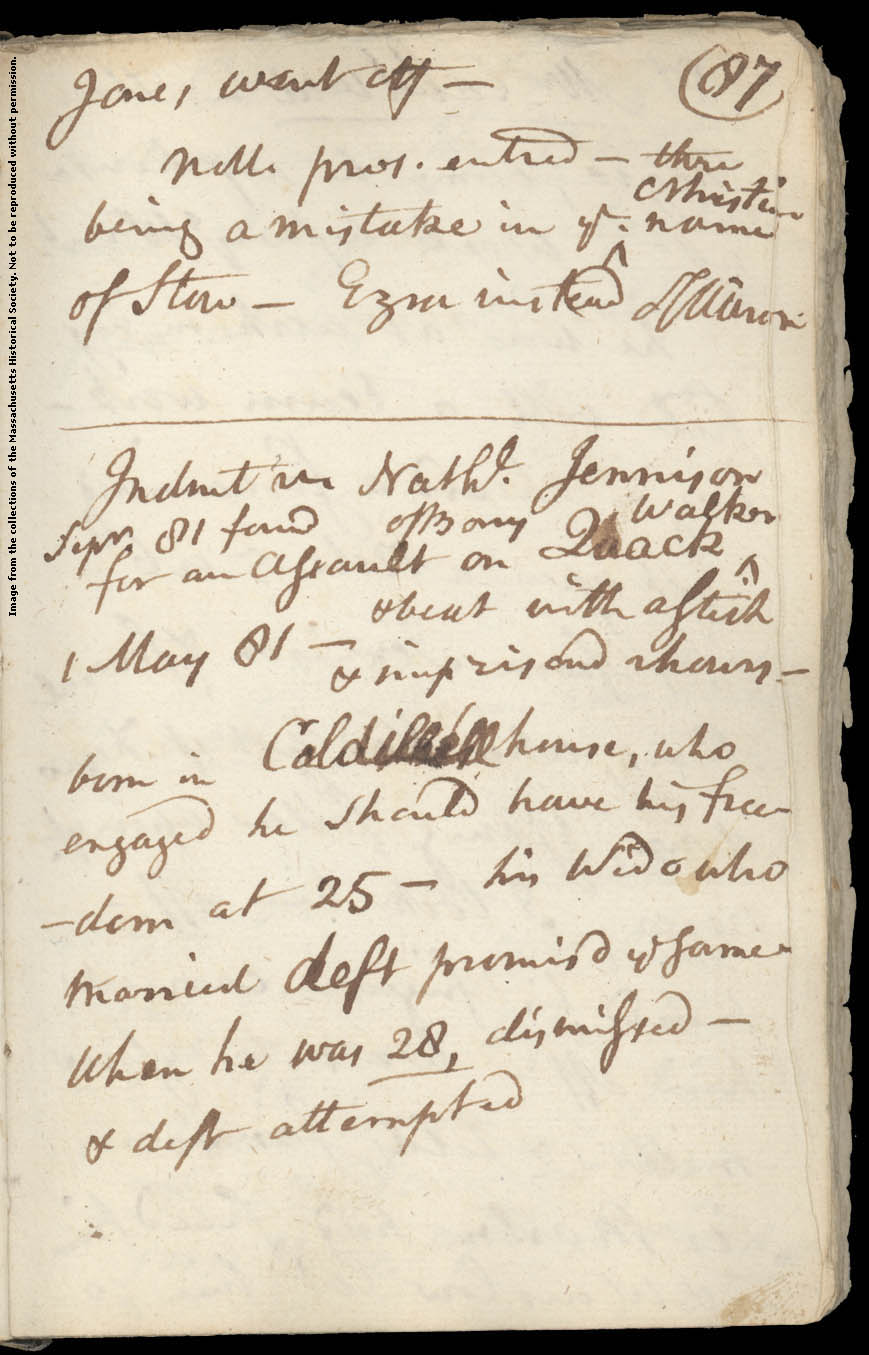 Image from the collections of the Massachusetts Historical Society. Not to be reproduced without permission.
87
Jones went off —
Nolle pros. entred —
Christian
being a mistake in ye. ^ name
of Stow — Ezra instead of Aaron
Indmt vs Nathl. Jennison
Sepr. 81 found of Barry Walker
for an Assault on Quack ^
1 May 81 — & beat with a stick
& imprisond 2 hours —
born in Caldwell house, who
engaged he should have his free-
-dom at 25 — his Wido who
married deft promisd ye same
when he was 28, dismissed —
& deft attempted